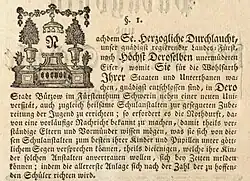 §. 1.
Nachdem Se. Herzogliche Durchlaucht,
unser gnädigst regierender Landes-Fürst,
nach Höchst Deroselben unermüdeten
Eifer, womit Sie für die Wohlfarth
Ihrer Staaten und Unterthanen wachen,
unser gnädigst entschlossen sind, in Dero
Stadt Bützow im Fürstenthum Schwerin einer neuen Universität,
auch zugleich heilsame Schulanstalten zur gesegneten Zubereitung
der Jugend zu errichten; so erfordert es die Nothdurft, davon
eine vorläufige Nachricht bekannt zu machen, damit theils verständige
Eltern und Vormünder wissen mögen, was sie sich von diesen
Schulanstalten zum besten ihrer Kinder und Pupillen unter göttlichem
Segen versprechen können, theils diejenigen, welche ihre Kinder
solchen Anstalten anvertrauen wollen, sich bey Zeiten melden
können; indem die allererste Anlage sich nach der Zahl der zu hoffenden
Schüler zu richten wird.